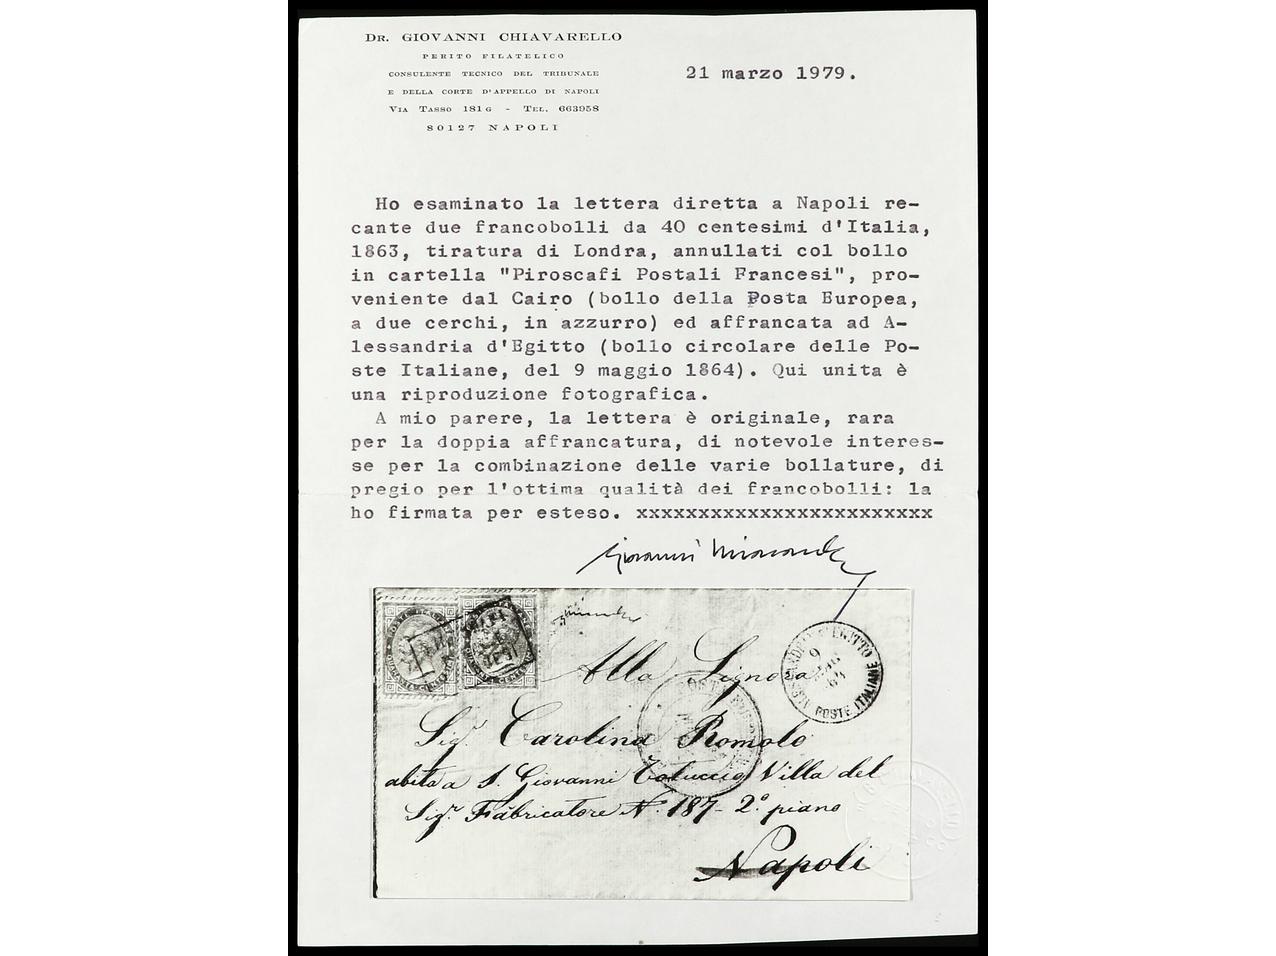 Dr. Giovanni Chiavarello
Perito Filatelico
Consulente Tecnico del Tribunale
e della Corte d'Appello di Napoli
Via Tasso 181 G - Tel. 663958
80127 Napoli
21 marzo 1979.
Ho esaminato la lettera diretta a Napoli re-
cante due francobolli da 40 centesimi d'Italia,
1863, tiratura di Londra, annullati col bollo
in cartella "Piroscafi Postali Francesi", pro-
veniente dal Cairo (bollo della Posta Europea,
a due cerchi, in azzurro) ed affrancata ad A-
lessandria d'Egitto (bollo circolare delle Po-
ste Italiane, del 9 maggio 1864). Qui unita è
una riproduzione fotografica.
A mio parere, la lettera è originale, rara
per la doppia affrancatura, di notevole interes-
se per la combinazione delle varie bollature, di
pregio per l'ottima qualità dei francobolli: la
ho firmata per esteso. xxxxxxxxxxxxxxxxxxxxxxxx
Giovanni
Alla Signora
Sig.ª Carolina Romolo
abita a S. Giovanni Villa del
Sig.r Fabricatore N. 187 - 2.º piano
Napoli
9
64
POSTE ITALIANE